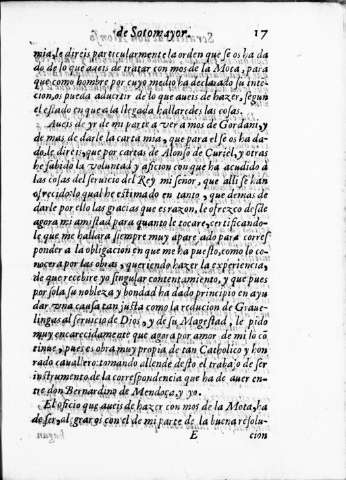 de Sotomayor. 17
mia, le direis particularmente la orden que se os ha da
do de lo que aueis de tratar con mos de la Mota, para
que como hombre por cuyo medio ha declarado su intẽ
cion, os pueda aduertir de lo que aueis de hazer, segun
el estado en que a la llegada hallaredes las cosas.
Aueis de yr de mi parte a ver a mos de Gordam, y
de mas de darle la carta mia, que para el se os ha da-
do, le direis, que por cartas de Alonso de Curiel, y otras
he sabido la voluntad y aficion con que ha acudido à
las cosas del seruicio del Rey mi señor, que alli se han
ofrecido lo qual he estimado en tanto, que demas de
darle por ello las gracias que es razon, le ofrezco desde
agora mi amistad para quanto le tocare, certificando-
le que me hallarà siempre muy aparejado para corres
pondr a la obligacion en que me ha puesto, como lo co
nocera por las obras, queriendo hazer la experiencia,
de que recebire yo singular contentamiento, y que pues
por sola su nobleza y bondad ha dado principio en ayu
dar vna causa tan justa como la reducion de Graue-
lingas al seruicio de Dios, y de su Magestad, le pido
muy encarecidamente que agora por amor de mi lo cõ
tinue, pues es obra muy propia de tan Catholico y hon
rado cauallero: tomando allende desto el trabajo de ser
instrumento de la correspondencia que ha de auer en-
tre don Bernardino de Mendoça, y yo.
El oficio que aueis de hazer con mos de la Mota, ha
de ser, alegraros con el de mi parte de la buena resolu-
E cion